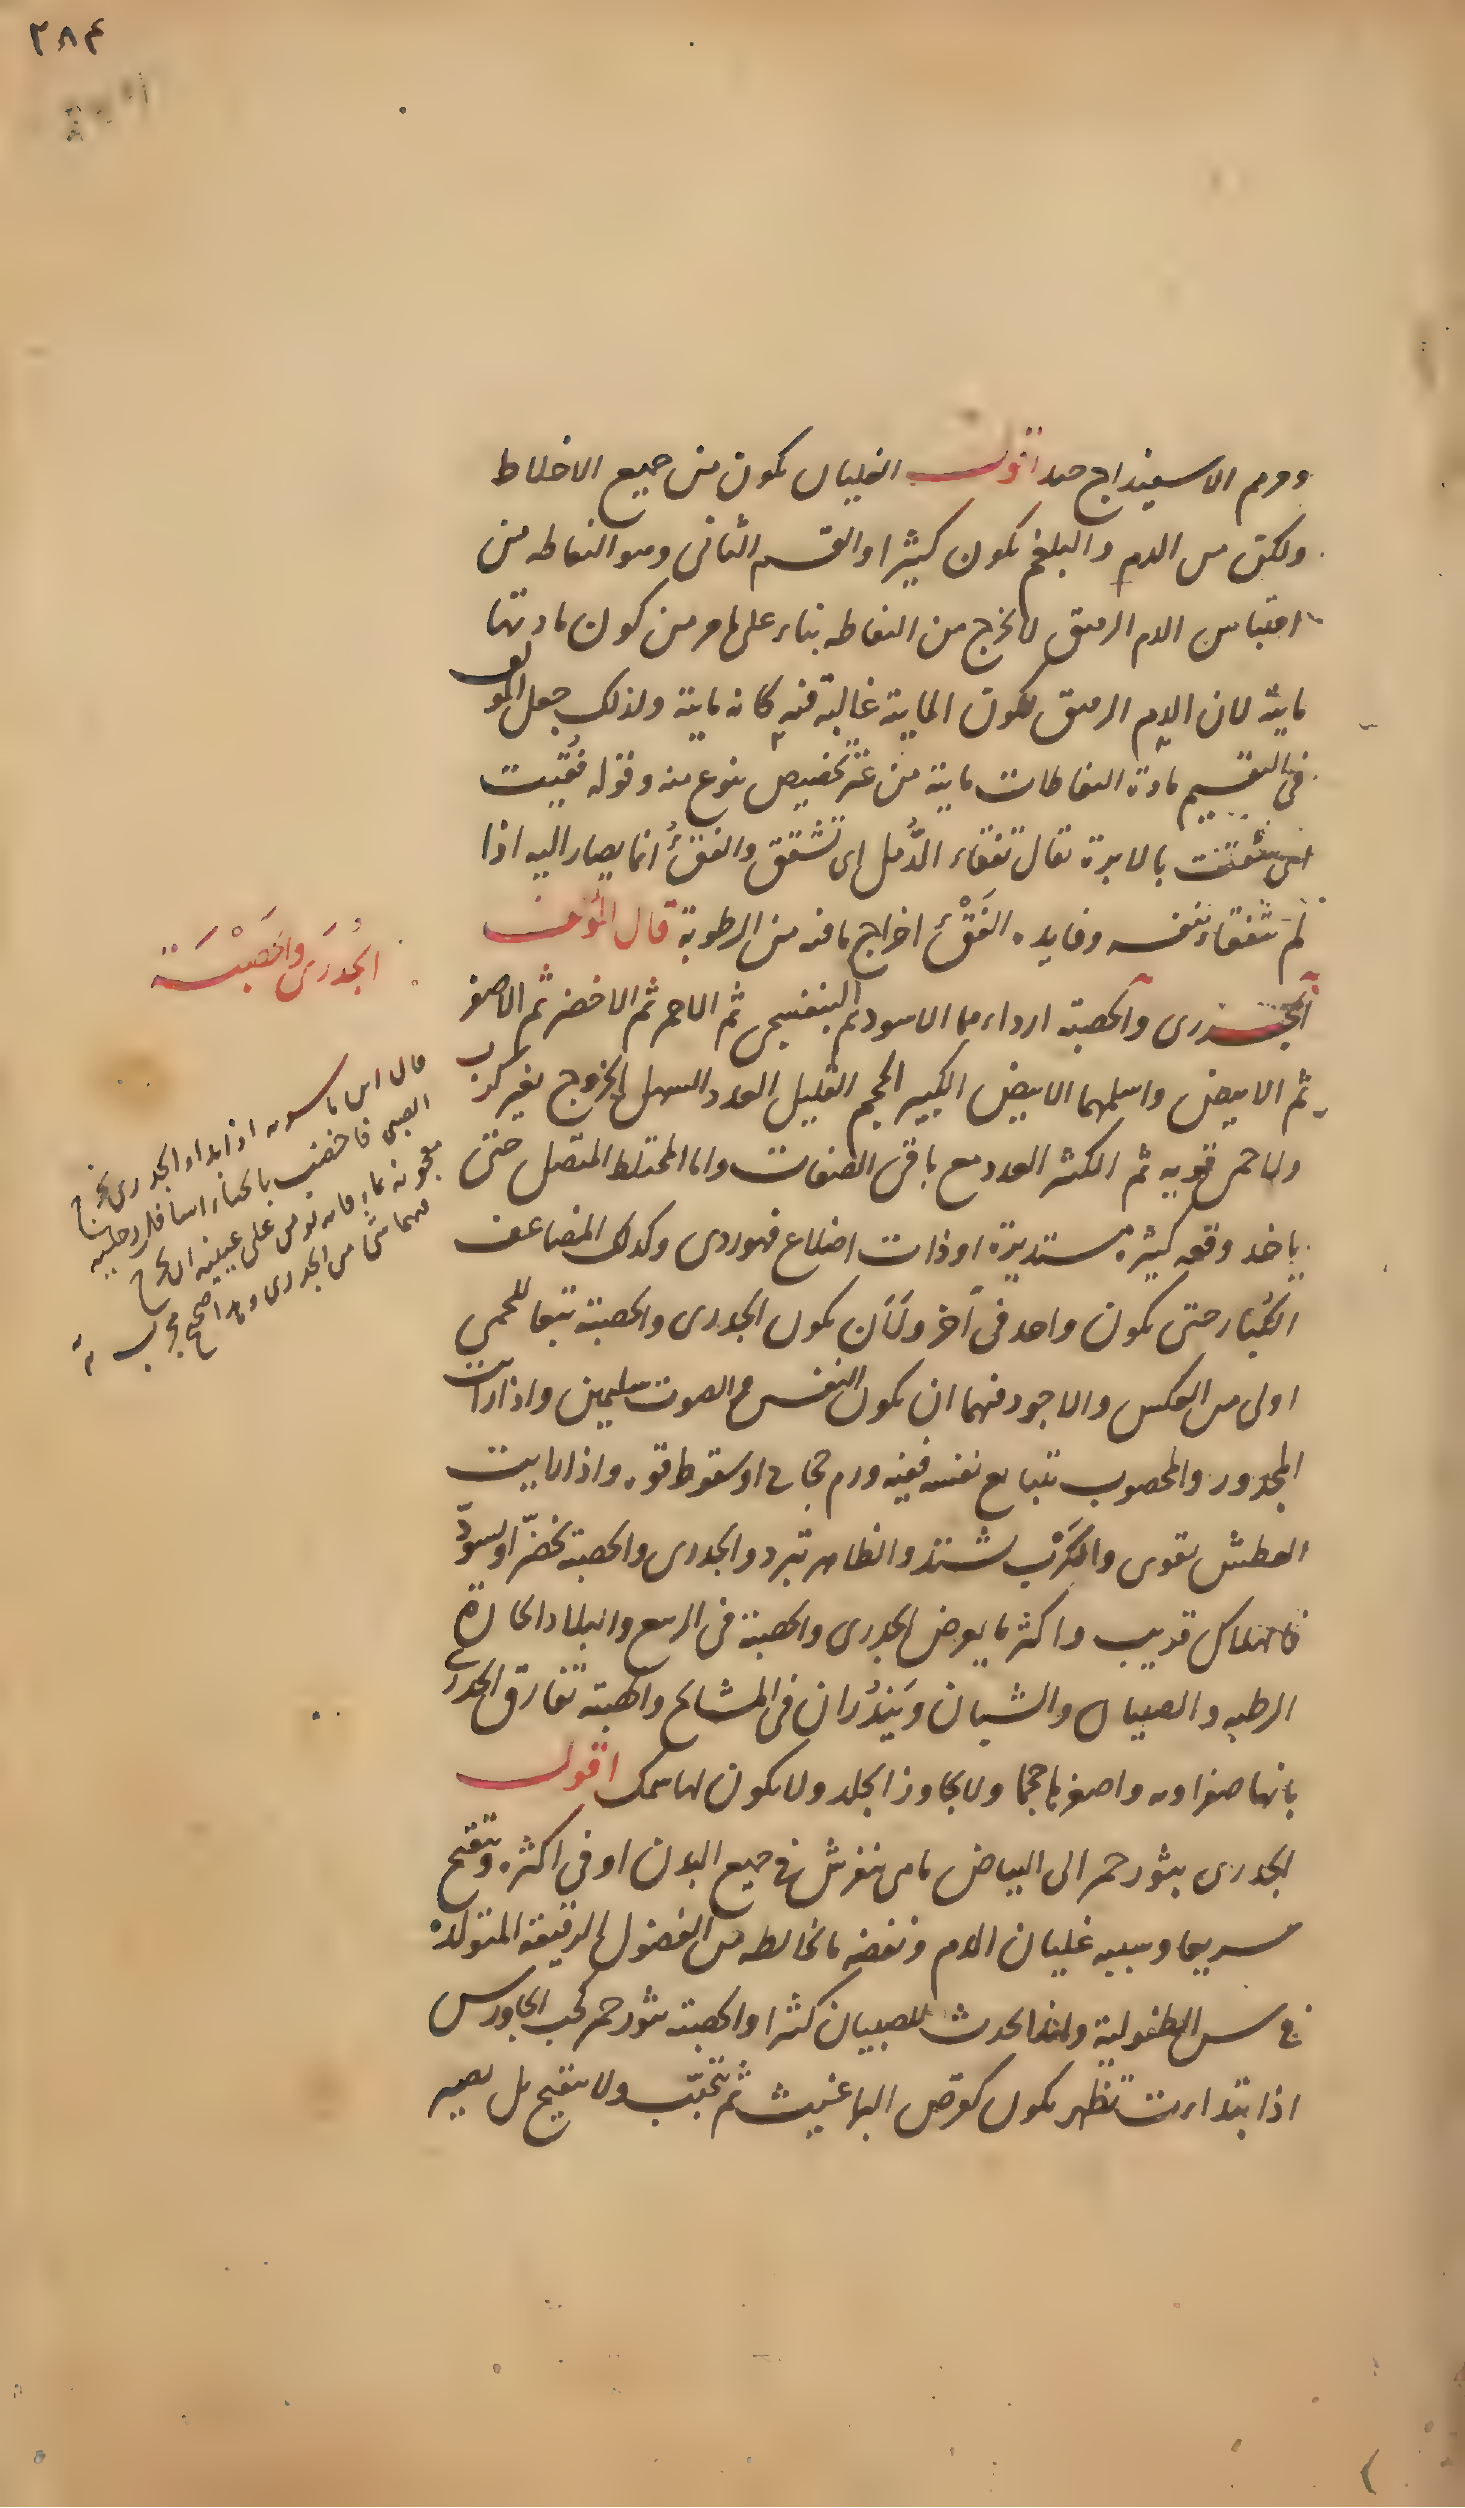 ٢٨٤
ومرهم الاسفيداج جيد اقول الغليان يكون من جميع الاخلاط
ولكن من الدم والبلغم يكون كثيرا والقسم الثانى وهو النفاطه من
احتباس الدم الرقيق لا يخرج من النفاطه بناء على ما مر من كون مادتها
مايية لان الدم الرقيق لكون المايية غالبة فيه كانه مايية ولذلك جعل المولف
فى التقسيم مادة النفاطات مايية من غير تخصيص بنوع منه وقوله فقيت
اى شقت بالابرة يقال تفقاء الدمل اى تشقق والفقئ انما يصار اليه اذا
لم تتفقاء بنفسه وفايده الفقئ اخراج ما فيه من الرطوبة قال المولف
الجدرى والحصبة ارداءهما الاسود ثم البنفسجى ثم الاحمر ثم الاخضر ثم الاصفر
ثم الابيض واسلمهما الابيض الكبير الحجم القليل العدد السهل الخروج بغير كرب
ولا حمى قويه ثم الكثير العدد مع باقى الصفات واما المختلط المتصل حتى
ياخذ وقعه كثيره مستديرة او ذات اضلاع فهو ردى وكذلك المضاعف
الكبار حتى يكون واحد فى آخر ولَاَن يكون الجدرى والحصبة تبعا للحمى
اولى من العكس والاجود فيهما ان يكون النفس مع الصوت سليمين واذا رايت
المجدور والمحصوب تتابع نفسه ففيه ورم حجاب او سقوط قوه واذا رايت
العطش يقوى والكرب يشتد والظاهر تبرد والجدرى والحصبة تخضر او يسود
فالهلاك قريب واكثر ما يعرض الجدرى والحصبة فى الربيع والبلاد الحارة
الرطبه والصبيان والشبان ويندران فى المشايخ والحصبة تفارق الجدرى
بانها صفراويه واصغر حجما ولا يجاوز الجلد ولا يكون لها سمك اقول
الجدرى بثور حمر الى البياض ما هى تنفرش فى جميع البدن او فى اكثره وتتقيح
سريعا وسببه غليان الدم ونفضه ما يخالطه من الفضول الرقيقة المتولده
فى سن الطفولية ولهذا يحدث للصبيان كثرا والحصبة بثور حمر كحب الجاورس
اذا ابتداءت تظهر يكون كقرص البراغيث ثم تتحبب ولا يتقيح بل يصير
الجُدَرى والحَصْبَة
قال ابن ماسويه اذا بداء الجدرى يخرج
الصبى فاخضب بالحناء اسافل رجليه
معجونه بماء فانه يومن على عينيه ان يخرج
فيهما شئ من الجدرى وهذا صحيح مجرب